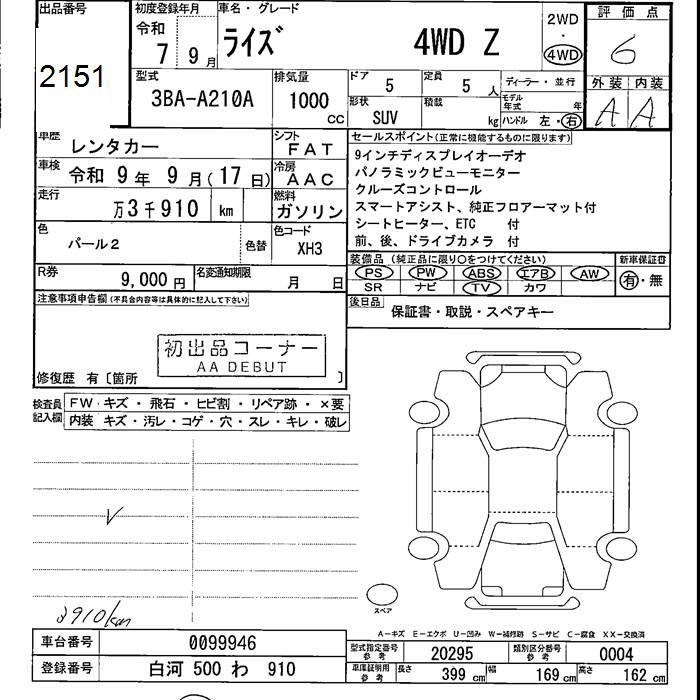 出品番号
2151
初度登録年月
令和
7 9月
車名・グレード
ライズ 4WD Z
2WD
・
4WD
評価点
6
外装 内装
A A
型式
3BA-A210A
排気量
1000
CC
ドア
5
定員
5 人
ディーラー・並行
形状
SUV
積載
kg
モデル
年式
年
ハンドル 左・右
車歴
レンタカー
シフト
FAT
車検
令和 9年 9月(17日)
冷房
AAC
走行
万3千910 km
燃料
ガソリン
色
パール2
色替
色コード
XH3
R券
9,000円
名変通知期限
月 日
セールスポイント(正常に機能するものに限ります)
9インチディスプレイオーデオ
パノラミックビューモニター
クルーズコントロール
スマートアシスト、純正フロアーマット付
シートヒーター、ETC 付
前、後、ドライブカメラ 付
装備品 (純正品に限り○をつけてください)
新車保証書
PS PW ABS エアB AW
SR ナビ TV カワ
有・無
後日品
保証書・取説・スペアキー
注意事項申告欄(不具合内容等は具体的に記入して下さい)
初出品コーナー
AA DEBUT
修復歴 有〔箇所 〕
検査員
記入欄
FW・キズ・飛石・ヒビ割・リペア跡・×要
内装 キズ・汚レ・コゲ・穴・スレ・キレ・破レ
3910km
スペア
A-キズ E-エクボ U-凹み W-補修跡 S-サビ C-腐食 XX-交換済
車台番号
0099946
登録番号
白河 500 わ 910
型式指定番号
参考
20295
類別区分番号
参考
0004
車庫証明用
参考
長さ
399 cm
幅
169 cm
高さ
162 cm